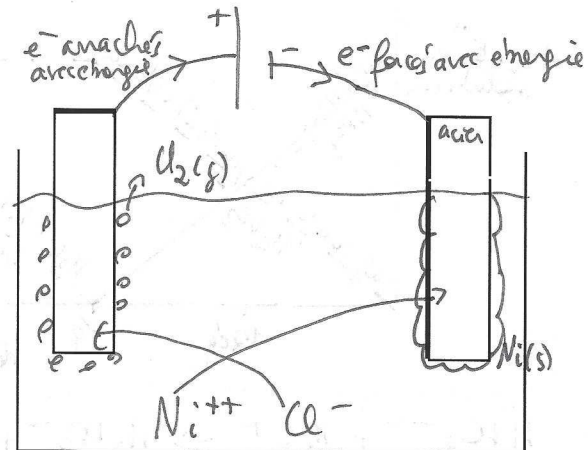 +
-
e⁻ arrachés
avec énergie
e⁻ forcés avec énergie
acier
Cl₂(g)
Ni(s)
Ni⁺⁺ Cl⁻